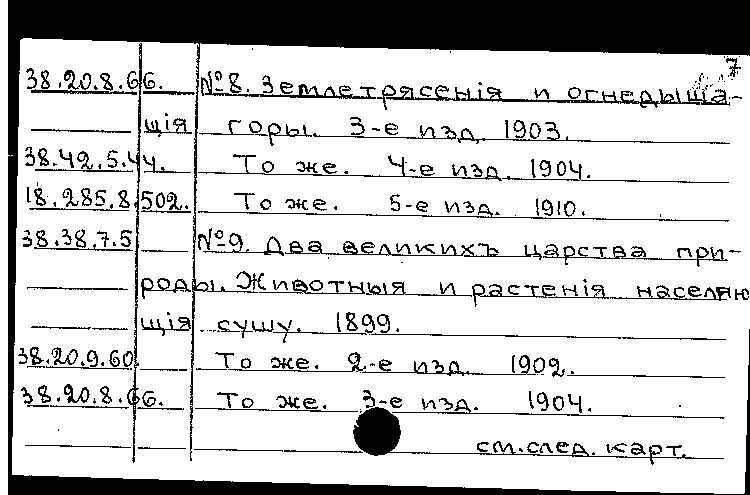 7
38.20.8.66. №8. Землетрясенія и огнедыща-
щія горы. 3-е изд. 1903.
38.42.5.44. То же. 4-е изд. 1904.
18.285.8.502. То же. 5-е изд. 1910.
38.38.7.5 №9. Два великихъ царства при-
роды. Животныя и растенія населяю
щія сушу. 1899.
38.20.9.60 То же. 2-е изд. 1902.
38.20.8.66. То же. 3-е изд. 1904.
см. след. карт.